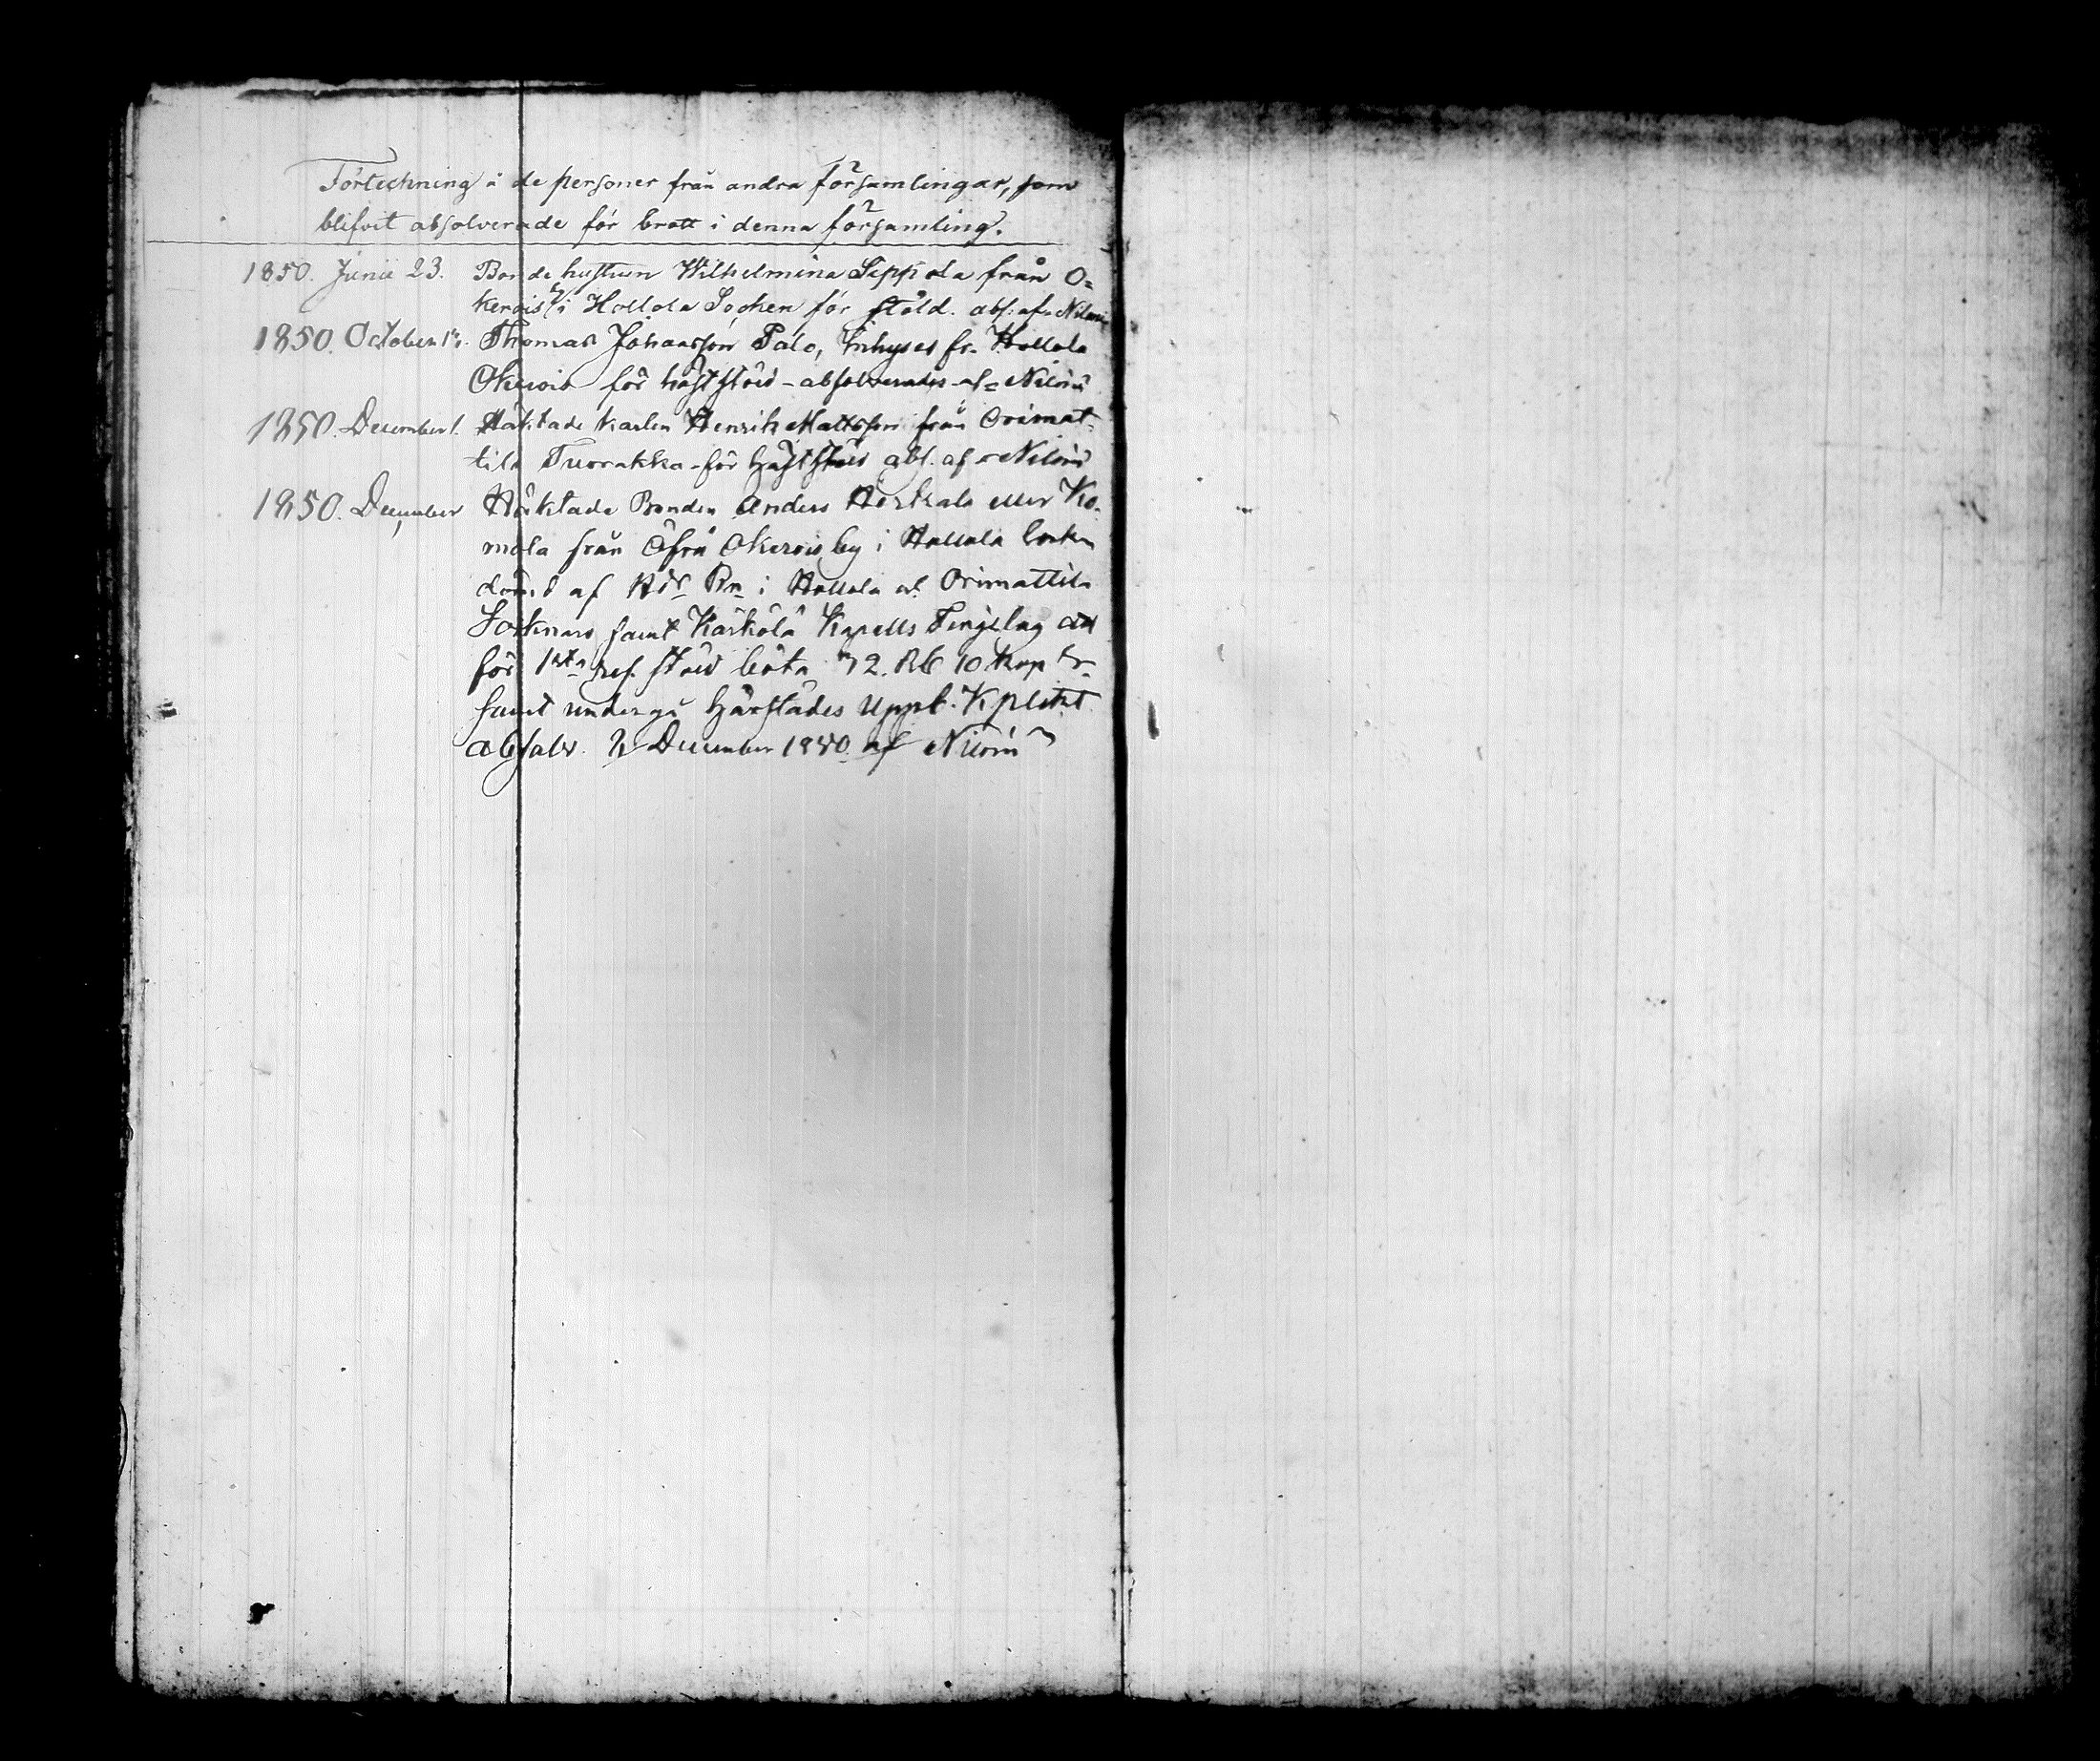 Förteckning å de personer från andra församlingar, som
blifvit absolverade för brott i denna församling.
1850. Junii 23. Bonde hustrun Wilhelmina Seppola från O-
kerois by i Hollola Socken för stöld. abs: af Nilonii
1850. October Thomas Johansson Palo, Inhyses fr. Hollola
Okerois för häst stöld - absolverades af Nilonii
1850. December 1. Häktade karlen Henrik Mattsson från Orimat-
tila Tuorakka för häst stöld abs. af Nilonii
1850. December Häktade Bonden Anders Herkala eller Ko-
mola från Öfra Okerois by i Hollola Socken
dömd af i Hollola och Orimattila
Socknars samt Kärkölä Kapells Tingslag att
för 1sta res. stöld böta 72. Rb 10 kop Sr
samt undergå härstädes Uppb. K plikt
absolv. 2 December 1850. af Nilonii